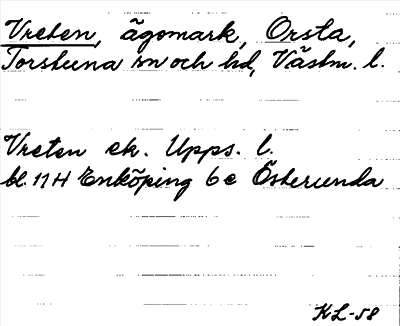 Vreten, ägomark, Orsta,
Torstuna sn och hd, Västm. l.
Vreten ek. Upps. l.
bl. 11 H Enköping 6 e Österunda
KL-58